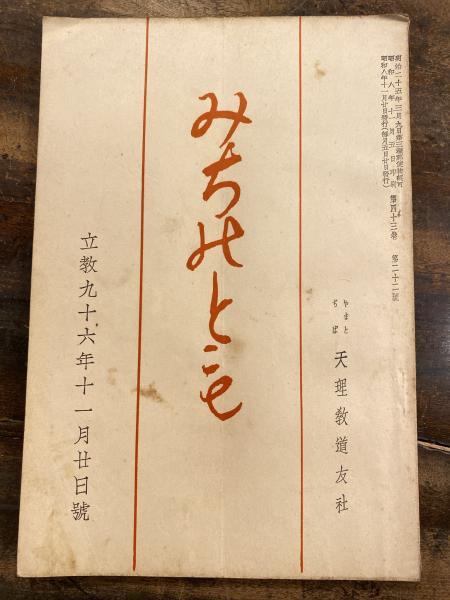 明治二十五年三月九日第三種郵便物認可
昭和八年十一月五日印刷
昭和八年十一月廿日發行(每月五日廿日發行)
第四十三卷 第二十二號
やまと
ぢば
天理教道友社
みちのとも
立教九十六年十一月廿日號